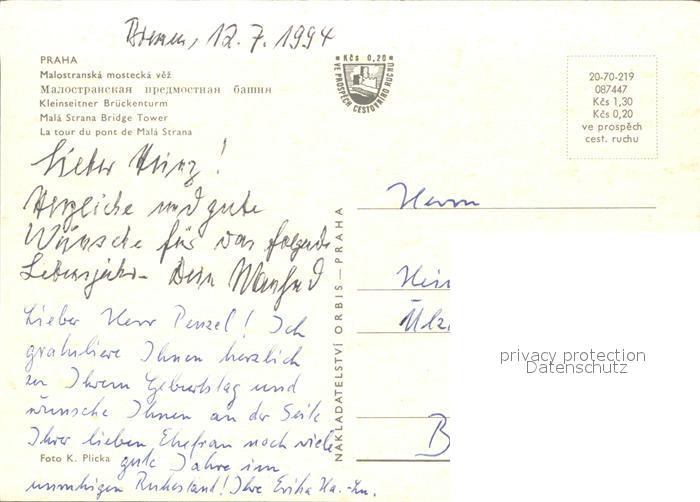 Bremen, 12.7.1994
PRAHA
Malostranská mostecká věž
Малостранская предмостная башня
Kleinseitner Brückenturm
Malá Strana Bridge Tower
La tour du pont de Malá Strana
Kčs 0,20
VE PROSPĚCH CESTOVNÍHO RUCHU
20-70-219
087447
Kčs 1,30
Kčs 0,20
ve prospěch
cest. ruchu
Lieber Heinz!
Herzliche und gute
Wünsche für das folgende
Lebensjahr - Dein Manfred
Lieber Herr Penzel! Ich
gratuliere Ihnen herzlich
zu Ihrem Geburtstag und
wünsche Ihnen an der Seite
Ihrer lieben Ehefrau noch viele
gute Jahre im
unruhigen Ruhestand! Ihre Erika Ha.-Ln.
Foto K. Plicka
NAKLADATELSTVÍ ORBIS — PRAHA
Herrn
Hein
Ülz
B
privacy protection
Datenschutz